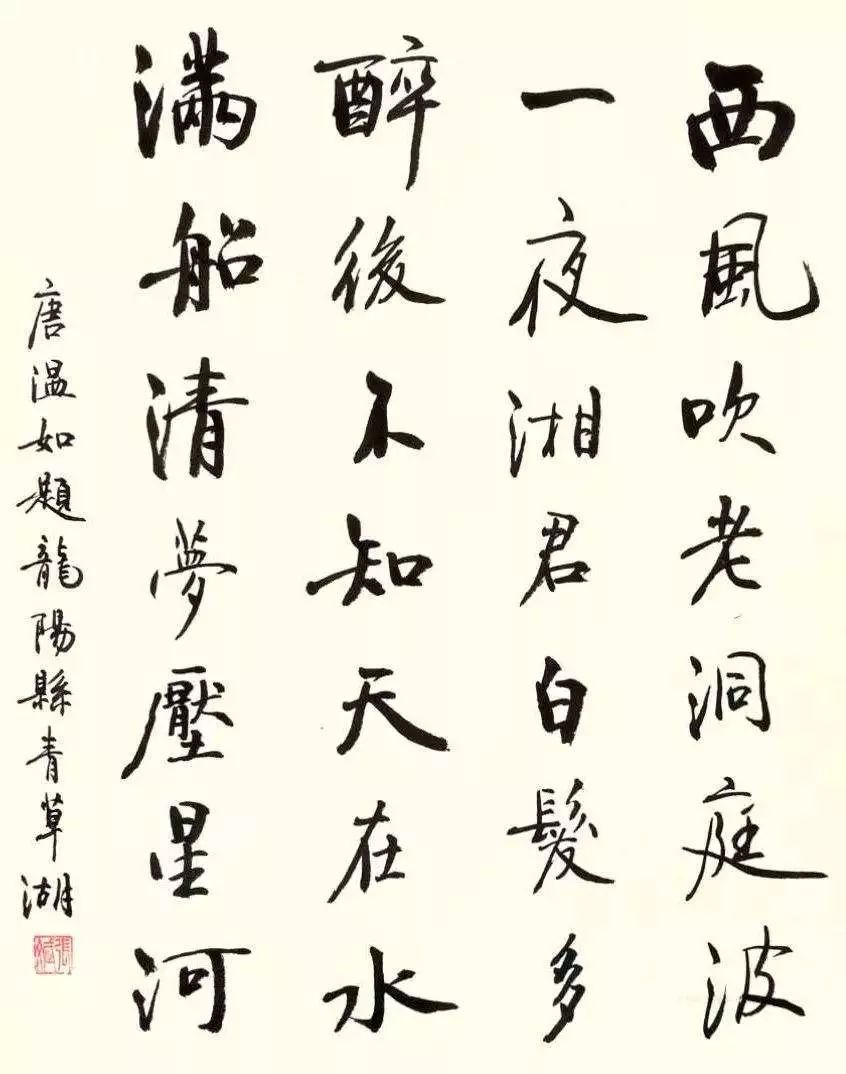 西風吹老洞庭波
一夜湘君白髮多
醉後不知天在水
滿船清夢壓星河
唐溫如題龍陽縣青草湖